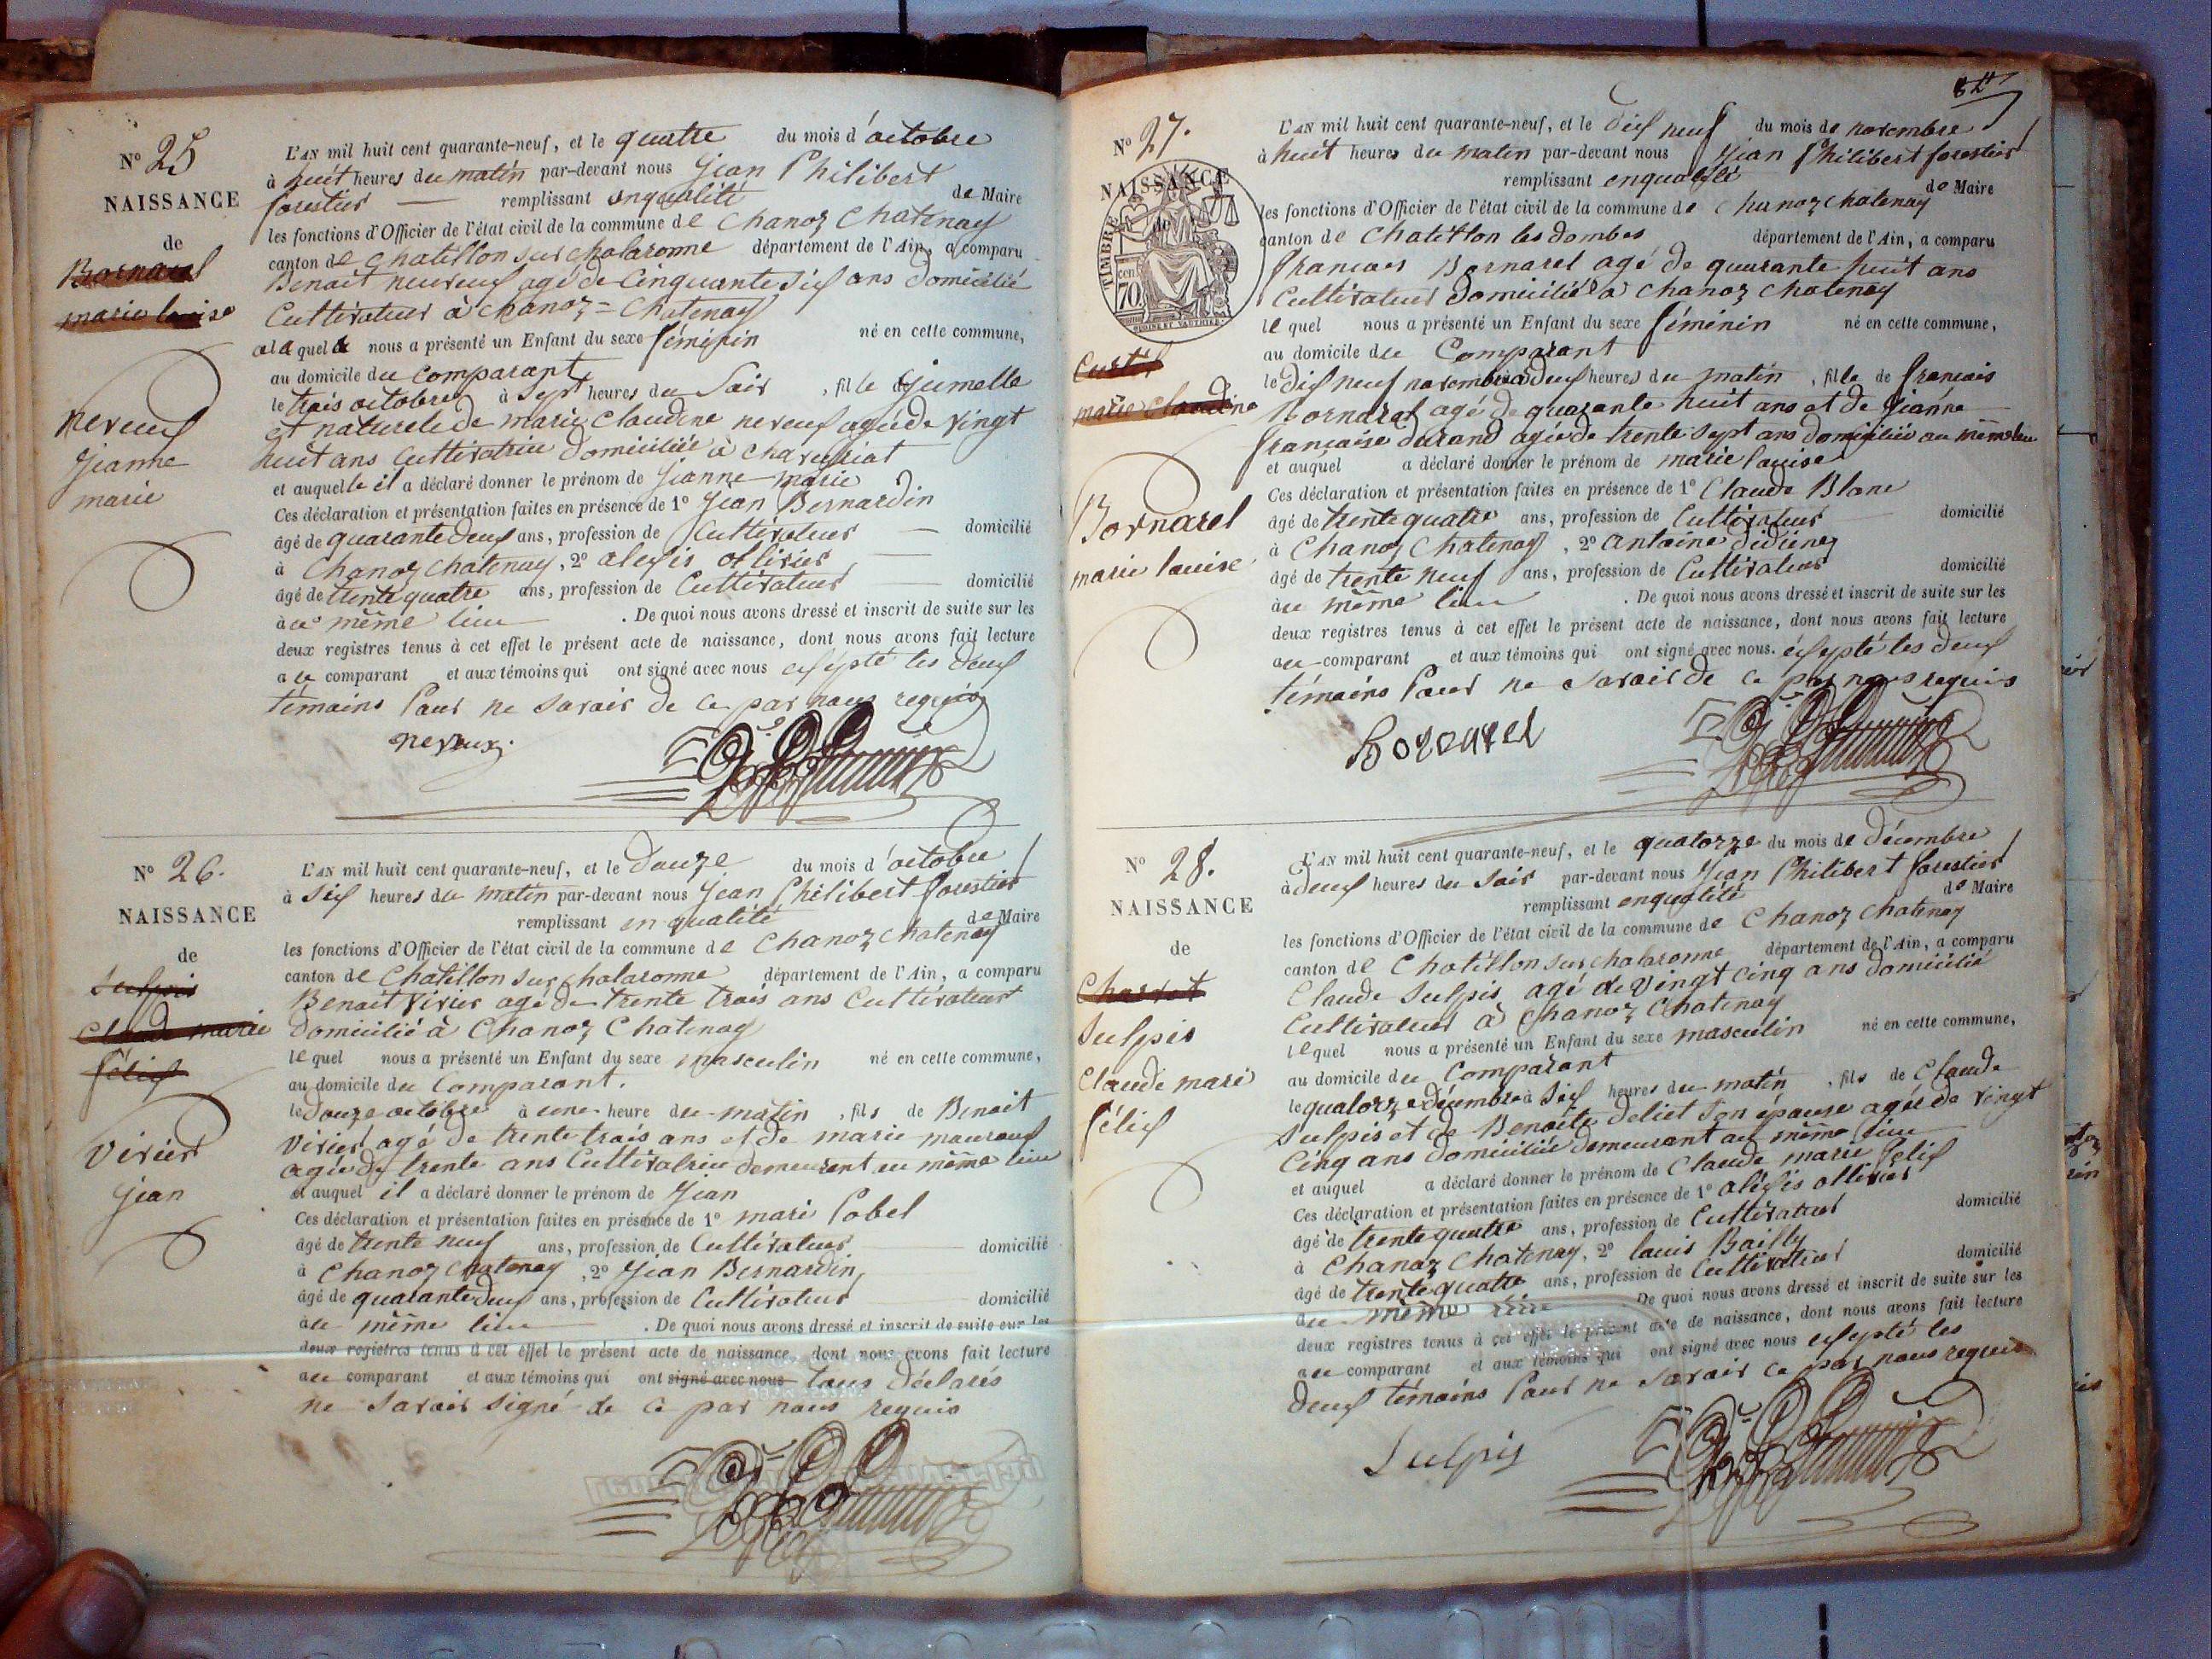 N° 25
NAISSANCE
de
Bornarel
marie louise
neveux
jeanne
marie
L'AN mil huit cent quarante-neuf, et le quatre du mois d'octobre
à huit heures du matin par-devant nous jean Philibert
forestier remplissant enqualité de Maire
les fonctions d'Officier de l'état civil de la commune de Chanoz Chatenay
canton de Chatillon sur chalaronne département de l'Ain, a comparu
Benoit neveux agé de Cinquante six ans domicilié
Cultivateur à Chanoz = Chatenay
quel nous a présenté un Enfant du sexe féminin né en cette commune,
au domicile du Comparant
le trois octobre à sept heures du Soir, fille jumelle
et naturele de marie Claudine neveux agée de vingt
huit ans Cultivatrice domiciliée à
et auquelle il a déclaré donner le prénom de jeanne marie
Ces déclaration et présentation faites en présence de 1° jean Bernardin
âgé de quarante deux ans, profession de Cultivateur domicilié
à Chanoz Chatenay, 2° alexis ollivier
âgé de trente quatre ans, profession de Cultivateur domicilié
au même lieu. De quoi nous avons dressé et inscrit de suite sur les
deux registres tenus à cet effet le présent acte de naissance, dont nous avons fait lecture
au comparant et aux témoins qui ont signé avec nous exsépté les deux
témoins Pour ne Savoir de ce par nous requis
neveux
N° 26.
NAISSANCE
de
Sulpis
Claude marie
félix
vivier
jean
L'AN mil huit cent quarante-neuf, et le douze du mois d'octobre
à six heures du matin par-devant nous jean Philibert forestier
remplissant en qualité de Maire
les fonctions d'Officier de l'état civil de la commune de Chanoz chatenay
canton de Chatillon sur chalaronne département de l'Ain, a comparu
Benoit vivier agé de trente trois ans Cultivateur
domicilié à Chanoz Chatenay
le quel nous a présenté un Enfant du sexe masculin né en cette commune,
au domicile du Comparant.
le douze octobre à une heure du matin, fils de Benoit
vivier agé de trente trois ans et de marie
agée de trente ans Cultivatrice demeurent au même lieu
et auquel il a déclaré donner le prénom de jean
Ces déclaration et présentation faites en présence de 1° mari Pobel
âgé de trente neuf ans, profession de Cultivateur domicilié
à Chanoz chatenay, 2° jean Bernardin,
âgé de quarante deux ans, profession de Cultivateur domicilié
au même lieu. De quoi nous avons dressé et inscrit de suite sur les
deux registres tenus à cet effet le présent acte de naissance, dont nous avons fait lecture
au comparant et aux témoins qui ont signé avec nous tous déclarés
ne Savoir signé de ce par nous requis
N° 27.
NAISSANCE
de
TIMBRE
70 cen
Curtil
marie claudine
Bornarel
marie louise
L'AN mil huit cent quarante-neuf, et le dix neuf du mois de novembre
à huit heures du matin par-devant nous jean Philibert forestier
remplissant enqualité de Maire
les fonctions d'Officier de l'état civil de la commune de Chanoz chatenay
canton de Chatillon les dombes département de l'Ain, a comparu
francois Bornarel agé de quarante huit ans
Cultivateur domicilié à Chanoz Chatenay
le quel nous a présenté un Enfant du sexe féminin né en cette commune,
au domicile du Comparant
le dix neuf novembre à deux heures du matin, fille de francois
Bornarel agé de quarante huit ans et de jeanne
francoise durand agée de trente sept ans domiciliée au même lieu
et auquel a déclaré donner le prénom de marie louise
Ces déclaration et présentation faites en présence de 1° Claude Blanc
âgé de trente quatre ans, profession de Cultivateur domicilié
à Chanoz Chatenay, 2° antoine
âgé de trente neuf ans, profession de Cultivateur domicilié
au même lieu. De quoi nous avons dressé et inscrit de suite sur les
deux registres tenus à cet effet le présent acte de naissance, dont nous avons fait lecture
au comparant et aux témoins qui ont signé avec nous. exsepté les deux
témoins Pour ne Savoir de ce par nous requis
Bornarel
N° 28.
NAISSANCE
de
Chardot
Sulpis
Claude mari
félix
L'AN mil huit cent quarante-neuf, et le quatorze du mois de décembre
à deux heures du Soir par-devant nous jean Philibert forestier
remplissant enqualité de Maire
les fonctions d'Officier de l'état civil de la commune de Chanoz chatenay
canton de Chatillon sur chalaronne département de l'Ain, a comparu
Claude Sulpis agé de vingt cinq ans domicilié
Cultivateur à Chanoz Chatenay
le quel nous a présenté un Enfant du sexe masculin né en cette commune,
au domicile du Comparant
le quatorze décembre à six heures du matin, fils de Claude
Sulpis et de Benoite deliet Son épouse agée de vingt
Cinq ans domiciliée demeurant au même lieu
et auquel a déclaré donner le prénom de Claude marie felix
Ces déclaration et présentation faites en présence de 1° alexis ollivier
âgé de trente quatre ans, profession de Cultivateur domicilié
à Chanoz Chatenay, 2° louis Bailly
âgé de trente quatre ans, profession de Cultivateur domicilié
au même lieu De quoi nous avons dressé et inscrit de suite sur les
deux registres tenus à cet effet le présent acte de naissance, dont nous avons fait lecture
au comparant et aux témoins qui ont signé avec nous exsepté les
deux témoins Pour ne Savoir ce par nous requis
Sulpis